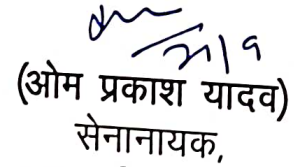 (ओम प्रकाश यादव)
सेनानायक,